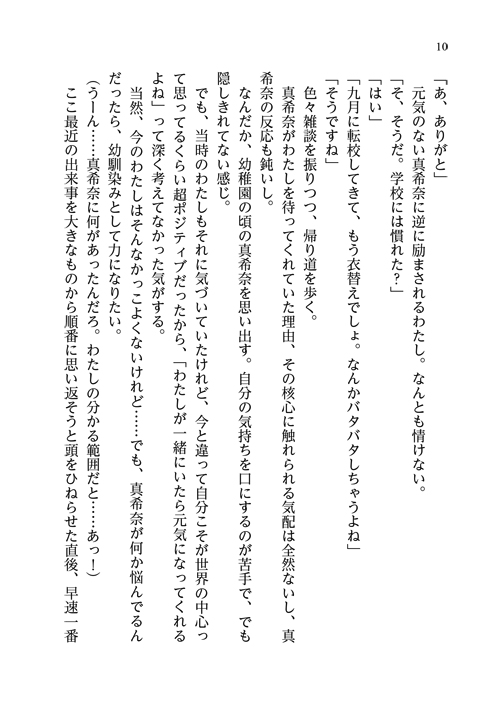 10
「あ、ありがと」
元気のない真希奈に逆に励まされるわたし。なんとも情けない。
「そ、そうだ。学校には慣れた？」
「はい」
「九月に転校してきて、もう衣替えでしょ。なんかバタバタしちゃうよね」
「そうですね」
色々雑談を振りつつ、帰り道を歩く。
真希奈がわたしを待ってくれていた理由、その核心に触れられる気配は全然ないし、真
希奈の反応も鈍いし。
なんだか、幼稚園の頃の真希奈を思い出す。自分の気持ちを口にするのが苦手で、でも
隠しきれてない感じ。
でも、当時のわたしもそれに気づいていたけれど、今と違って自分こそが世界の中心っ
て思ってるくらい超ポジティブだったから、「わたしが一緒にいたら元気になってくれる
よね」って深く考えてなかった気がする。
当然、今のわたしはそんなかっこよくないけれど……でも、真希奈が何か悩んでるん
だったら、幼馴染みとして力になりたい。
（うーん……真希奈に何があったんだろ。わたしの分かる範囲だと……あっ！）
ここ最近の出来事を大きなものから順番に思い返そうと頭をひねらせた直後、早速一番